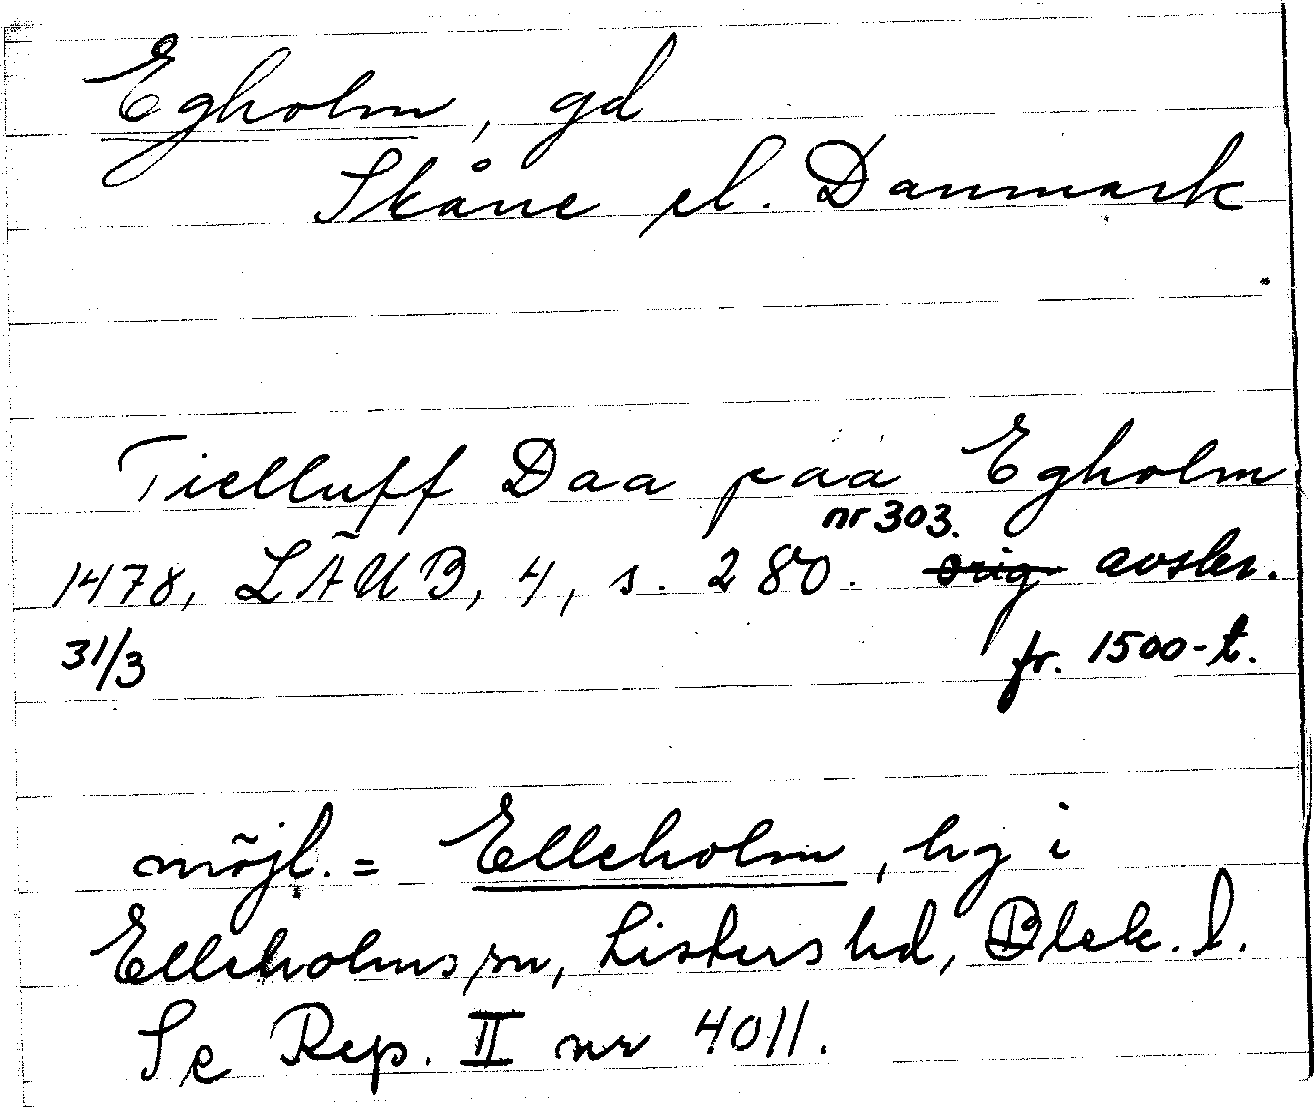 Egholm, gd
Skåne el. Danmark
Tielluff Daa paa Egholm
nr 303.
1478, LÄUB, 4, s. 280. orig avskr.
31/3 fr. 1500-t.
möjl. = Elleholm, hg i
Elleholms sn, Listers hd, Blek. l.
Se Rep. II nr 4011.